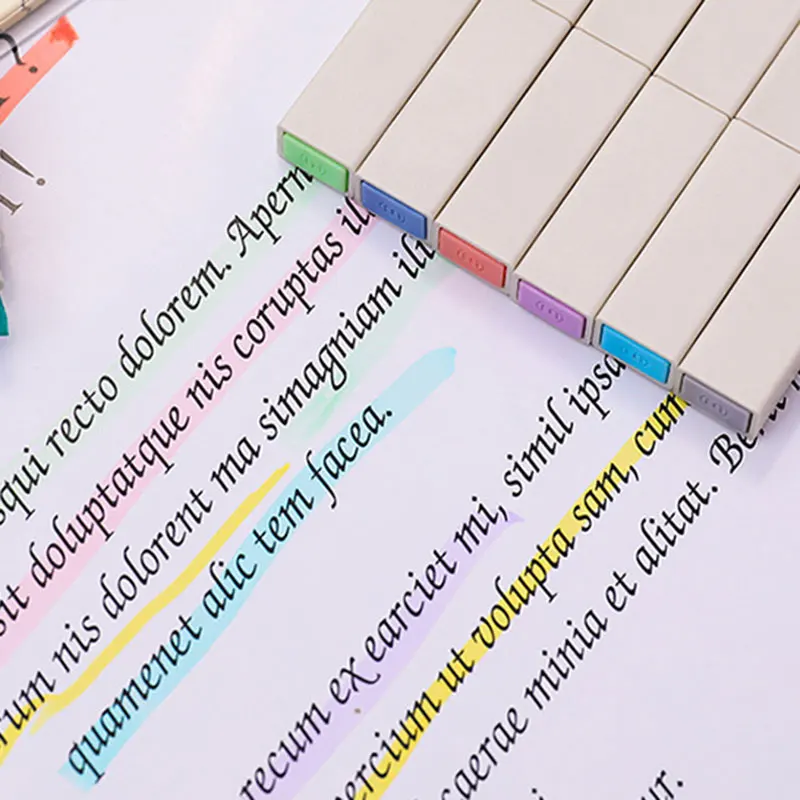 ?
!
qui recto dolorem. Apern
doluptatque nis coruptas
nis dolorent ma simagniam
quamenet alic tem facea.
recum ex earciet mi, simil ipsa
ercium ut volupta sam, cum
caerae minia et alitat.